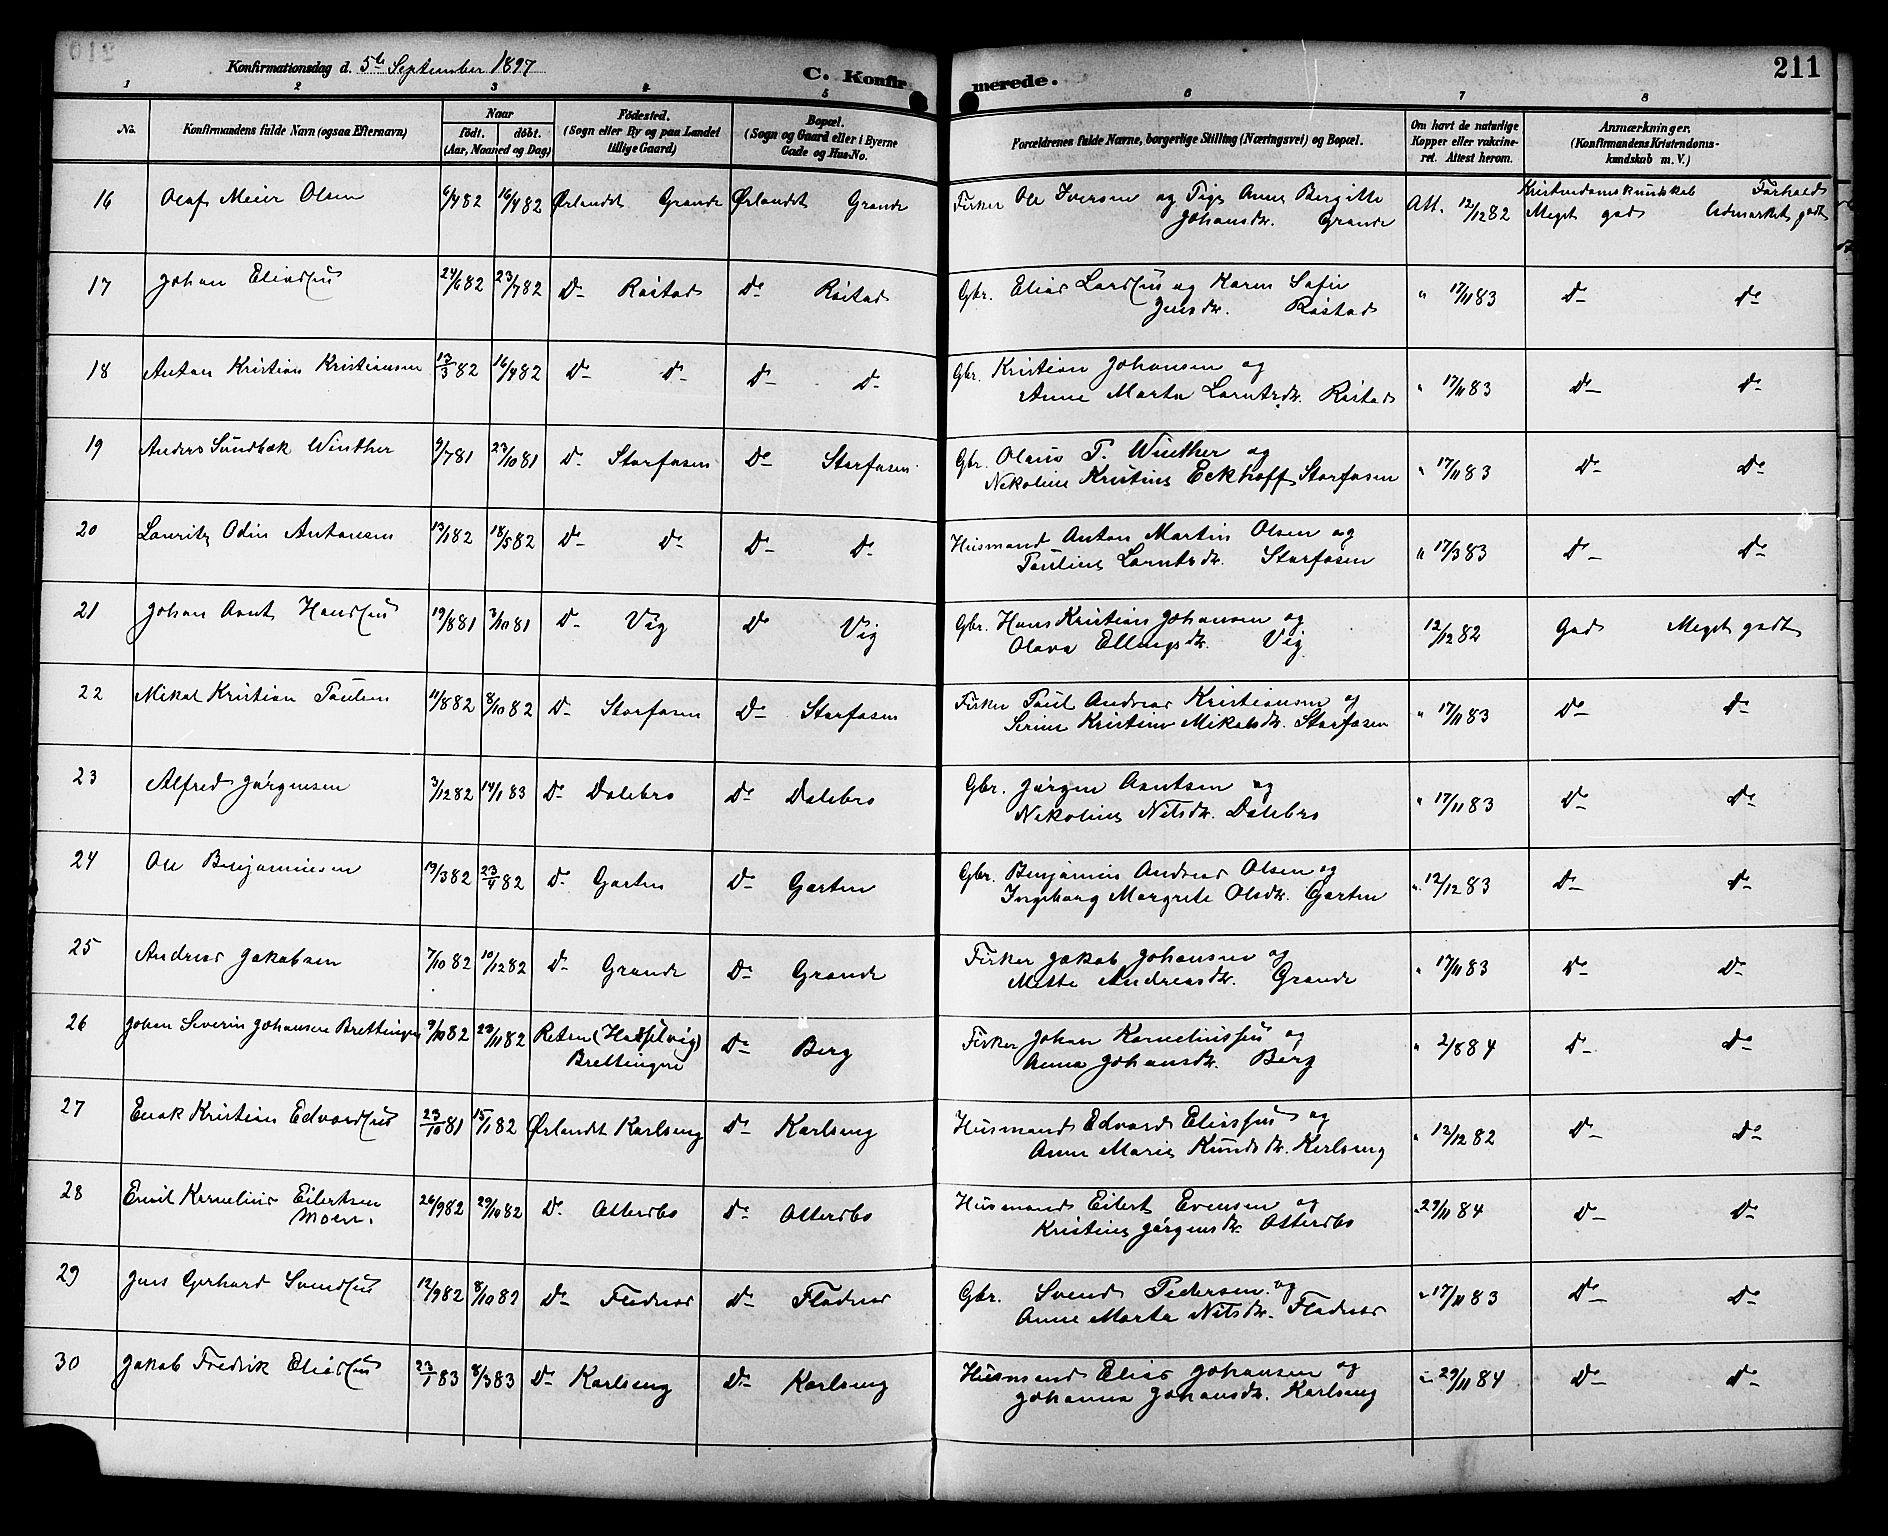 Konfirmationsdag d. 5te September 1897
C. Konfirmerede.
211
1 2 3 4 5 6 7 8
No.
Konfirmandens fulde Navn (ogsaa Efternavn)
Naar
født. døbt.
(Aar, Maaned og Dag)
Fødested.
(Sogn eller By og paa Landet
tillige Gaard)
Bopæl.
(Sogn og Gaard eller i Byerne
Gade og Hus-No.
Forældrenes fulde Navne, borgerlige Stilling (Næringsvei) og Bopæl.
Om havt de naturlige
Kopper eller vakcine-
ret. Attest herom.
Anmærkninger.
(Konfirmandens Kristendoms-
kundskab m. V.)
16 Olaf Meier Olsen 6/4 82 16/4 82 Ørlandet Grande Ørlandet Grande Fisker Ole Iversen og Pige Anne Bergitte Att. 12/12 82 Kristendomskundskab Forhold
Johansdtr. Grande Meget god Udmærket godt
17 Johan Eliassen 24/6 82 23/7 82 Do Røstad Do Røstad Gbr. Elias Larssen og Karen Sofie " 17/11 83 Do Do
Jensdtr. Røstad
18 Anton Kristian Kristiansen 13/3 82 16/4 82 Do Do Do Do Gbr. Kristian Johansen og " 17/11 83 Do Do
Anne Marta Larntsdtr. Røstad
19 Anders Sundbæk Winther 9/7 81 23/10 81 Do Storfosen Do Storfosen Gbr. Olaus P. Winther og " 17/11 83 Do Do
Nikoline Kristine Eckhoff Storfosen
20 Lauritz Odin Antonsen 13/1 82 18/5 82 Do Do Do Do Husmand Anton Martin Olsen og " 17/3 83 Do Do
Pauline Larntsdtr. Storfosen
21 Johan Arnt Hanssen 19/8 81 3/10 81 Do Vig Do Vig Gbr. Hans Kristian Johansen og 12/12 82 God Meget godt
Olava Ellingsdtr. Vig
22 Mikal Kristian Paulsen 11/8 82 8/10 82 Do Storfosen Do Storfosen Fisker Paul Andreas Kristiansen og " 17/11 83 Do Do
Serine Kristine Mikalsdtr. Storfosen
23 Alfred Jørgensen 3/12 82 14/1 83 Do Dalebro Do Dalebro Gbr. Jørgen Arntsen og " 17/11 83 Do Do
Nikoline Nilsdtr. Dalebro
24 Ole Benjaminsen 19/3 82 23/4 82 Do Garten Do Garten Gbr. Benjamin Andreas Olsen og " 12/12 83 Do Do
Ingeborg Margrete Olsdtr. Garten
25 Andreas Jakobsen 7/10 82 10/12 82 Do Grande Do Grande Fisker Jakob Johansen og " 17/11 83 Do Do
Mette Andreasdtr. Grande
26 Johan Severin Johansen Brettingen 9/10 82 23/11 82 Reten (Hasselvig) Do Berg Fisker Johan Korneliussen og " 2/8 84 Do Do
Brettingen Anna Johansdtr. Berg
27 Enok Kristian Edvardsen 23/10 81 15/1 82 Ørlandet Karlseng Do Karlseng Husmand Edvard Eliassen og " 12/12 82 Do Do
Anne Marie Knudsdtr. Karlseng
28 Emil Kornelius Eilertsen 26/9 82 29/10 82 Do Otterсbo Do Ottersbo Husmand Eilert Evensen og 29/11 84 Do Do
Moen. Kristine Jørgensdtr. Ottersbo
29 Jens Gerhard Svendsen 12/9 82 8/10 82 Do Fladnes Do Fladnes Gbr. Svend Pedersen og " 17/11 83 Do Do
Anne Marta Nilsdtr. Fladnes
30 Jakob Fredrik Eliassen 23/1 83 8/3 83 Do Karlseng Do Karlseng Husmand Elias Johansen og " 29/11 84 Do Do
Johanna Johansdtr. Karlseng